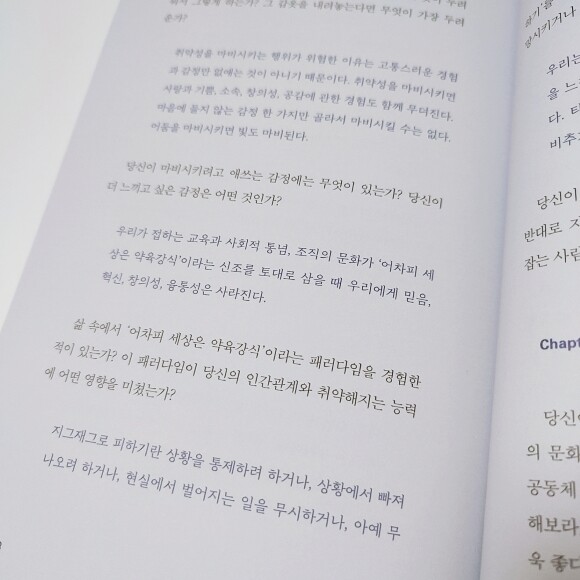 하지 그렇게 하는가? 그 갑옷을 내려놓는다면 무엇이 가장 두려
운가?
취약성을 마비시키는 행위가 위험한 이유는 고통스러운 경험
과 감정만 없애는 것이 아니기 때문이다. 취약성을 마비시키면
사랑과 기쁨, 소속, 창의성, 공감에 관한 경험도 함께 무뎌진다.
마음에 들지 않는 감정 한 가지만 골라서 마비시킬 수는 없다.
어둠을 마비시키면 빛도 마비된다.
당신이 마비시키려고 애쓰는 감정에는 무엇이 있는가? 당신이
더 느끼고 싶은 감정은 어떤 것인가?
우리가 접하는 교육과 사회적 통념, 조직의 문화가 ‘어차피 세
상은 약육강식’이라는 신조를 토대로 삼을 때 우리에게 믿음,
혁신, 창의성, 융통성은 사라진다.
삶 속에서 ‘어차피 세상은 약육강식’이라는 패러다임을 경험한
적이 있는가? 이 패러다임이 당신의 인간관계와 취약해지는 능력
에 어떤 영향을 미쳤는가?
지그재그로 피하기란 상황을 통제하려 하거나, 상황에서 빠져
나오려 하거나, 현실에서 벌어지는 일을 무시하거나, 아예 무
하기’를
망시키거나
우리는
을 느
다. 타
비추
당신이
반대로 지
잡는 사람
Chapt
당신이
의 문화
공동체
해보라
욱 좋다